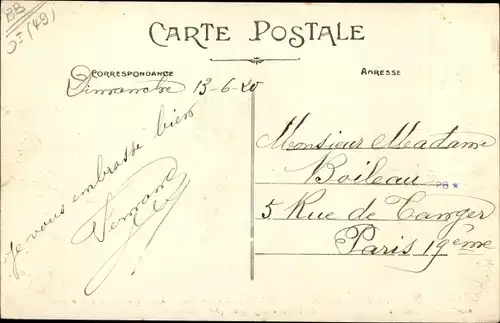 BB
DI (49)
CARTE POSTALE
CORRESPONDANCE
ADRESSE
Dimanche 13-6-20
Je vous embrasse bien
Fernand
Monsieur Madame
Boileau
PB *
5 Rue de Tanger
Paris 19ème